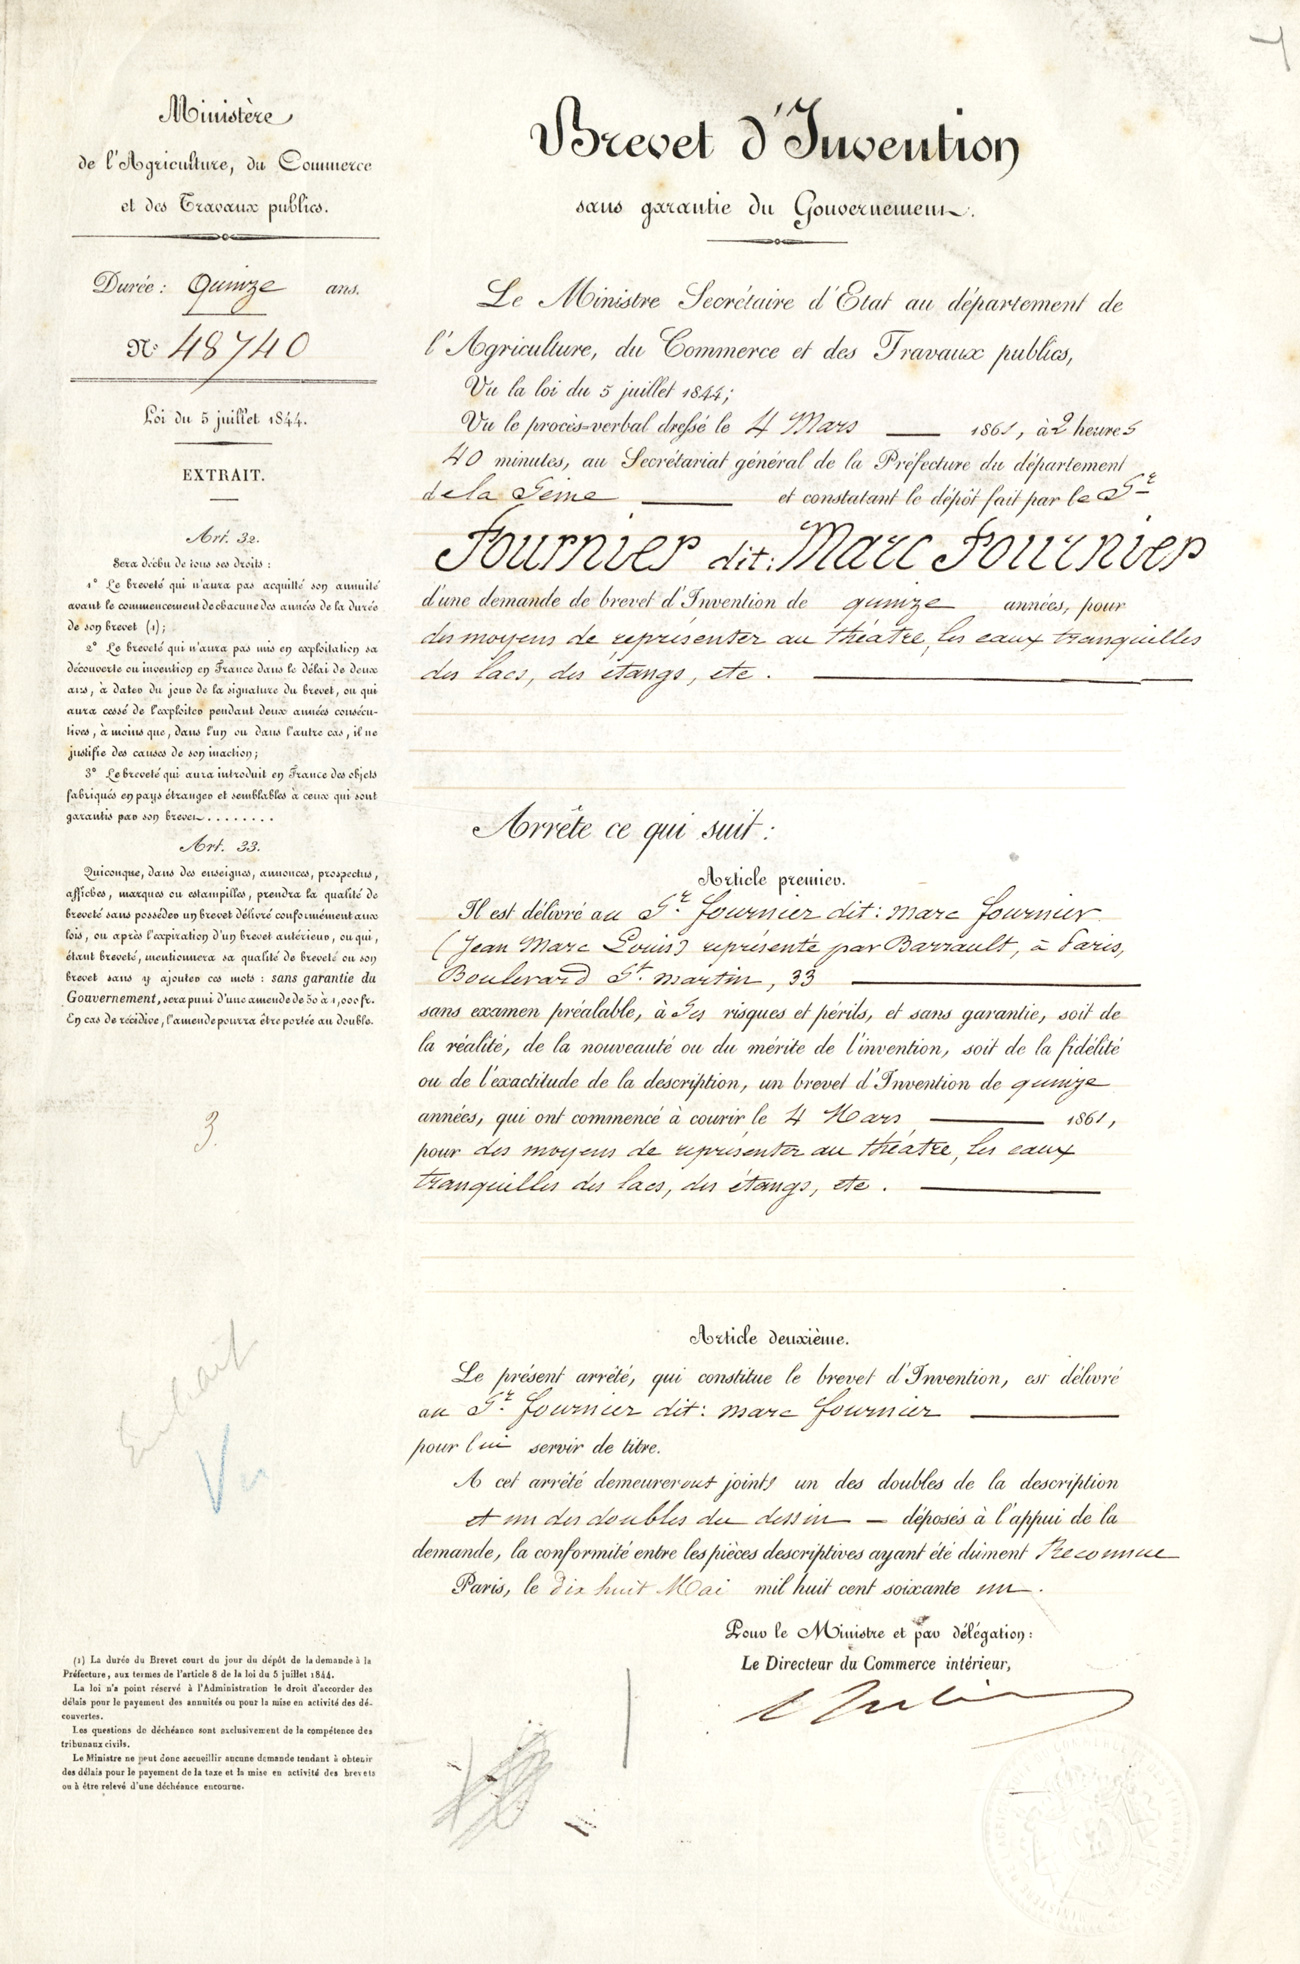 Ministère
de l'Agriculture, du Commerce
et des Travaux publics.
Durée : Quinze ans.
N° 48740
Loi du 5 juillet 1844.
EXTRAIT.
Art. 32.
Sera déchu de tous ses droits :
1° Le breveté qui n'aura pas acquitté son annuité
avant le commencement de chacune des années de la durée
de son brevet (1) ;
2° Le breveté qui n'aura pas mis en exploitation sa
découverte ou invention en France dans le délai de deux
ans, à dater du jour de la signature du brevet, ou qui
aura cessé de l'exploiter pendant deux années consécu-
tives, à moins que, dans l'un ou dans l'autre cas, il ne
justifie des causes de son inaction ;
3° Le breveté qui aura introduit en France des objets
fabriqués en pays étranger et semblables à ceux qui sont
garantis par son brevet........
Art. 33.
Quiconque, dans des enseignes, annonces, prospectus,
affiches, marques ou estampilles, prendra la qualité de
breveté sans posséder un brevet délivré conformément aux
lois, ou après l'expiration d'un brevet antérieur, ou qui,
étant breveté, mentionnera sa qualité de breveté ou son
brevet sans y ajouter ces mots : sans garantie du
Gouvernement, sera puni d'une amende de 50 à 1,000 fr.
En cas de récidive, l'amende pourra être portée au double.
3.
(1) La durée du Brevet court du jour du dépôt de la demande à la
Préfecture, aux termes de l'article 8 de la loi du 5 juillet 1844.
La loi n'a point réservé à l'Administration le droit d'accorder des
délais pour le payement des annuités ou pour la mise en activité des dé-
couvertes.
Les questions de déchéance sont exclusivement de la compétence des
tribunaux civils.
Le Ministre ne peut donc accueillir aucune demande tendant à obtenir
des délais pour le payement de la taxe et la mise en activité des brevets
ou à être relevé d'une déchéance encourue.
Brevet d'Invention
sans garantie du Gouvernement.
Le Ministre Secrétaire d'Etat au département de
l'Agriculture, du Commerce et des Travaux publics,
Vu la loi du 5 juillet 1844 ;
Vu le procès-verbal dressé le 4 Mars 1861, à 2 heures
40 minutes, au Secrétariat général de la Préfecture du département
de la Seine et constatant le dépôt fait par le Sr
Fournier dit : Marc Fournier
d'une demande de brevet d'Invention de quinze années, pour
des moyens de représenter au théatre, les eaux tranquilles
des lacs, des étangs, etc.
Arrête ce qui suit :
Article premier.
Il est délivré au Sr. Fournier dit : Marc Fournier
(Jean Marc Louis) représenté par Barrault, à Paris,
Boulevard St. Martin, 33
sans examen préalable, à ses risques et périls, et sans garantie, soit de
la réalité, de la nouveauté ou du mérite de l'invention, soit de la fidélité
ou de l'exactitude de la description, un brevet d'Invention de quinze
années, qui ont commencé à courir le 4 Mars 1861,
pour des moyens de représenter au théatre, les eaux
tranquilles des lacs, des étangs, etc.
Article deuxième.
Le présent arrêté, qui constitue le brevet d'Invention, est délivré
au Sr. Fournier dit : Marc Fournier
pour lui servir de titre.
A cet arrêté demeureront joints un des doubles de la description
et un des doubles du dessin — déposés à l'appui de la
demande, la conformité entre les pièces descriptives ayant été dûment Reconnue
Paris, le dix huit Mai mil huit cent soixante un.
Pour le Ministre et par délégation :
Le Directeur du Commerce intérieur,